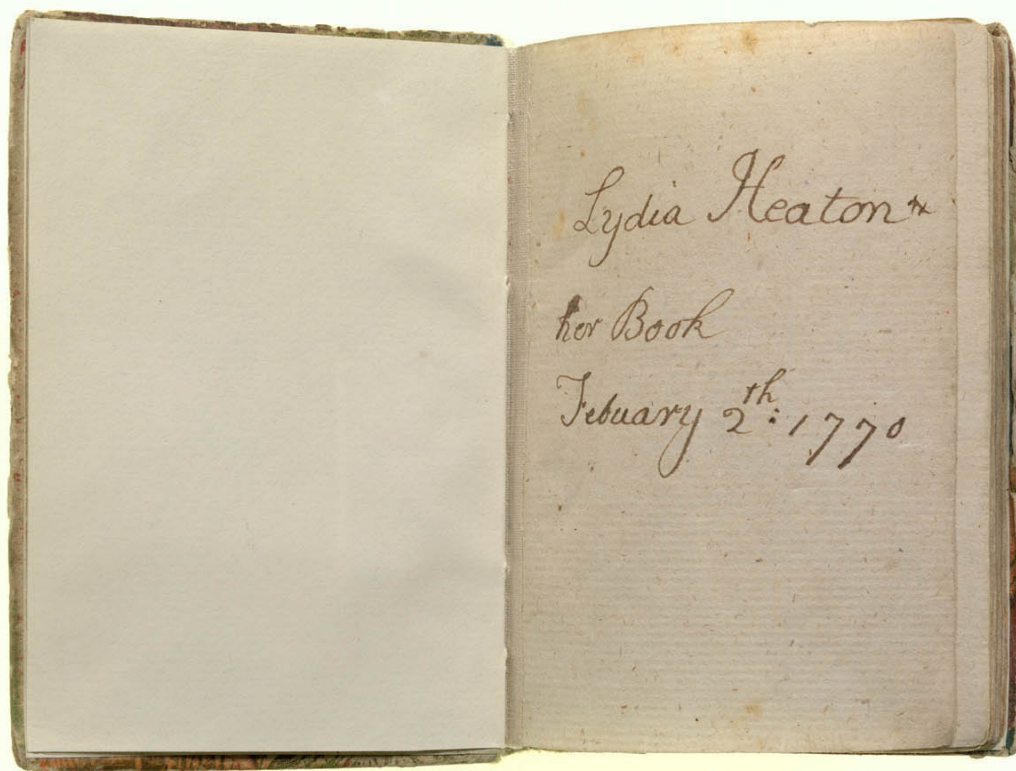 Lydia Heaton
her Book
Febuary 2th: 1770